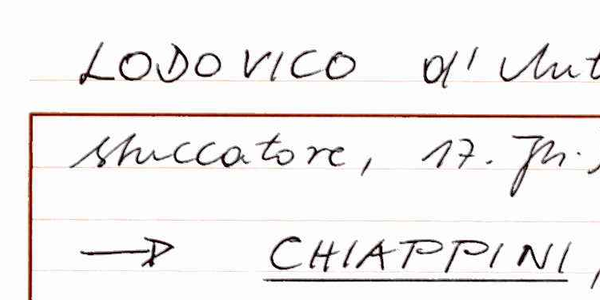 LODOVICO d'
stuccatore, 17. Jh.
→ CHIAPPINI,